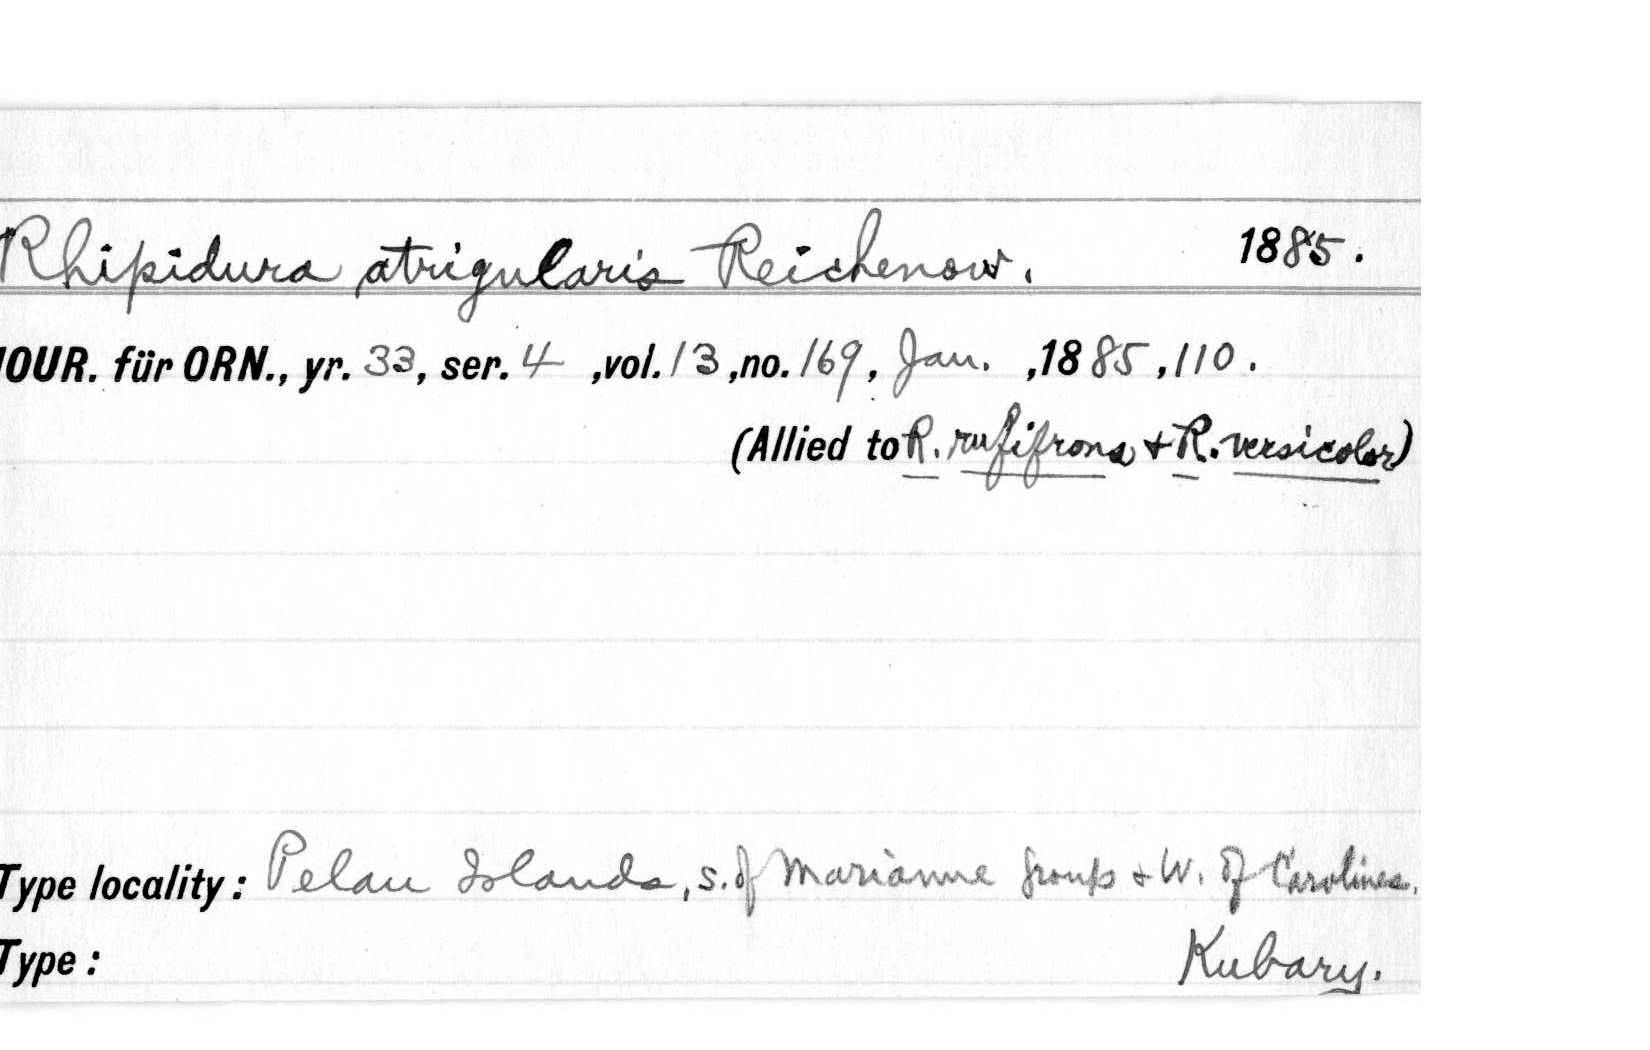 Rhipidura atrigularis Reichenow. 1885.
JOUR. für ORN., yr. 33, ser. 4 ,vol. 13 ,no. 169, Jan. ,1885 ,110.
(Allied to R. rufifrons + R. versicolor)
Type locality: Pelau Islands, s. of Marianne group + W. of Carolines.
Type: Kubary.